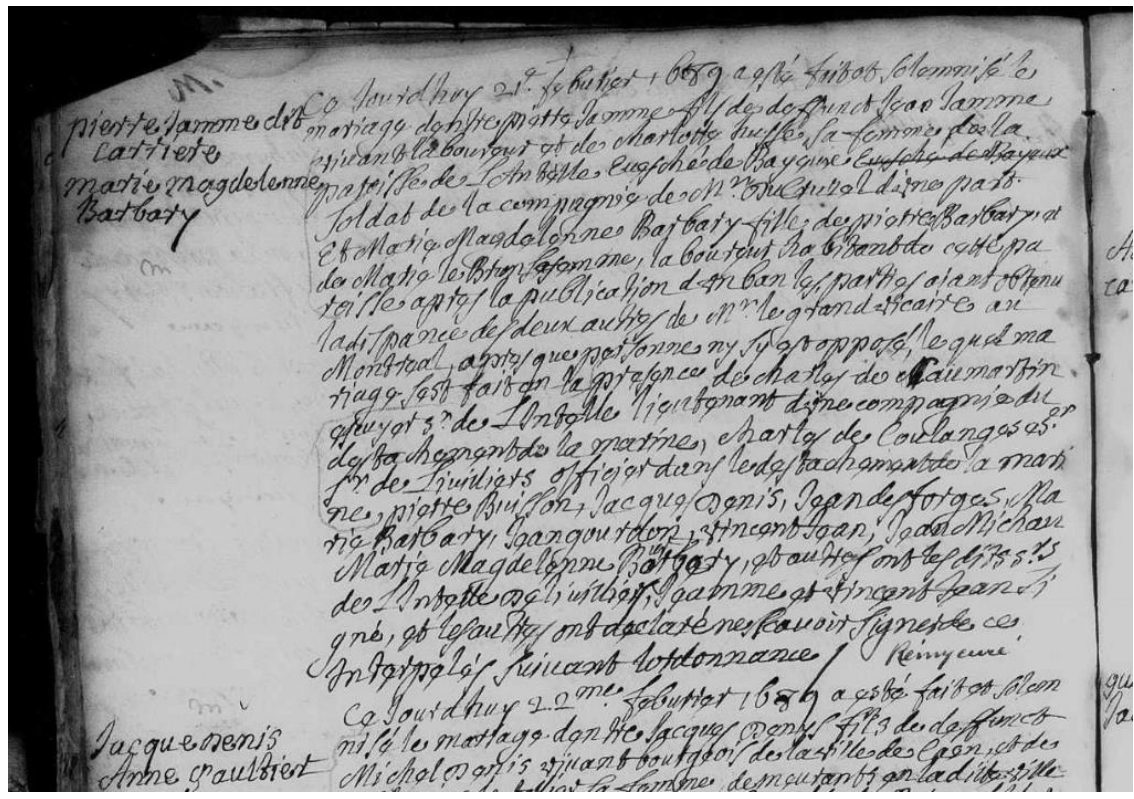 M.
pierre Jamme dit
Carriere
marie magdelenne
Barbary
Ce Jourdhuy 21e. febvrier 1689 a esté fait et solemnisé le
mariage dentre pierre Jamme fils de deffunct Jean Jamme
vivant laboureur et de charlotte husse sa femme de la
paroisse de Lantelle Euesché de Bayeux Euesché de Bayeux
Soldat de la compagnie de Mr. dune part
Et Marie Magdelenne Barbary fille de pierre Barbary, et
de Marie le Brun sa femme, laboureur habitant de cette pa
roisse apres la publication dun ban les parties aiant obtenu
la dispance des deux autres de Mr. le grand vicaire au
Montreal, apres que personne ny sy est opposé, le quel ma
riage s'est fait en la presence de charles de Caumartin
escuyer sr. de L'Intelle lieutenant dune compagnie du
destachement de la marine, charles de Coulanges es.er
sr. de Liuilliers officier dans le destachement de la mari
ne, pierre Buisson, Jacques Denis, Jean desforges, Ma
rie Barbary, Jean gourdon, vincent Jean, Jean Michau
Marie Magdelenne Barbary, et autres ont les dits srs
de L'Intelle de liuilliers, Jamme et vincent Jean si
gné, et les autres ont declaré ne scavoir signer de ce
Interpelés suivant lordonnance /
Remy curé
Jacque Denis
Anne gaultier
Ce Jourdhuy 22me. febvrier 1689 a esté fait et solem
nisé le mariage dentre Jacques Denys fils de deffunct
Michel Denis vivant bourgeois de la ville de Caen, et de
sa femme, demeurants en la ditte ville